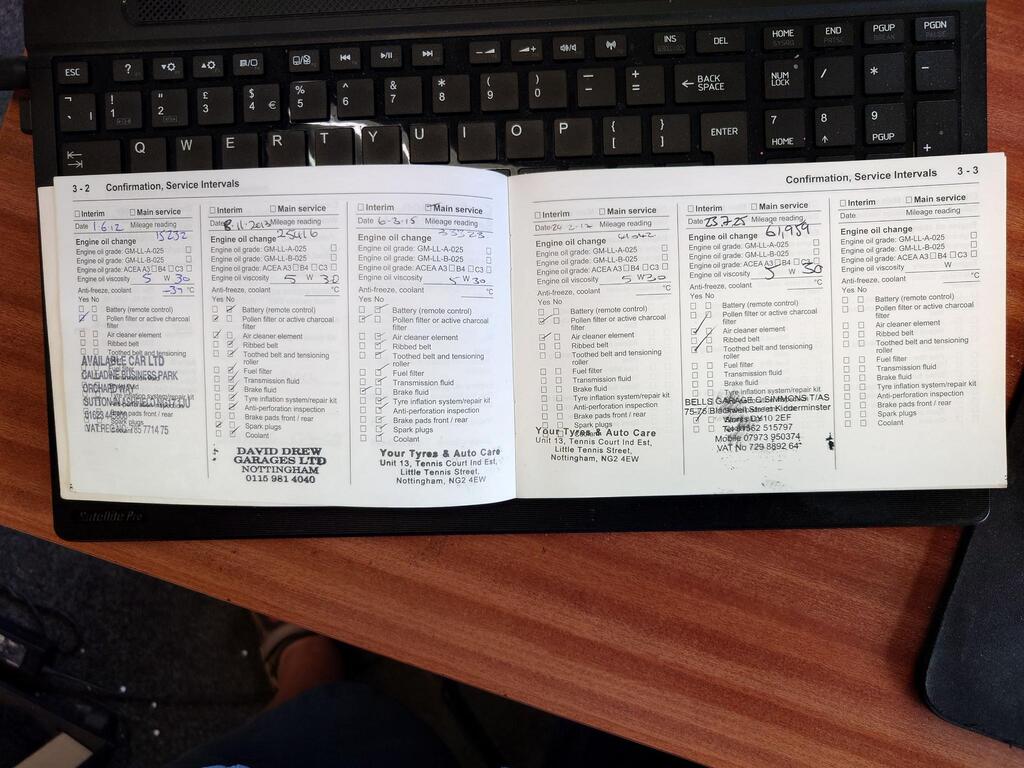 ESC ? INS DEL HOME END PGUP PGDN
! 1 " 2 £ 3 $ 4 € % 5 ^ 6 & 7 * 8 ( 9 ) 0 - + = BACK SPACE NUM LOCK / * -
Q W E R T Y U I O P { [ } ] ENTER 7 HOME 8 9 PGUP +
3 - 2 Confirmation, Service Intervals
Interim Main service
Date 1-6-12 Mileage reading
15232
Engine oil change
Engine oil grade: GM-LL-A-025
Engine oil grade: GM-LL-B-025
Engine oil grade: ACEA A3 B4 C3
Engine oil viscosity 5 W 30
Anti-freeze, coolant -37 °C
Yes No
Battery (remote control)
Pollen filter or active charcoal
filter
Air cleaner element
Ribbed belt
AVAILABLE CAR LTD
CALLADINE BUSINESS PARK
ORCHARD WAY
SUTTON IN ASHFIELD NG17 1JU
Brake pads front / rear
Spark plugs
Coolant
Interim Main service
Date 8.11.2013 Mileage reading
25416
Engine oil change
Engine oil grade: GM-LL-A-025
Engine oil grade: GM-LL-B-025
Engine oil grade: ACEA A3 B4 C3
Engine oil viscosity 5 W 30
Anti-freeze, coolant °C
Yes No
Battery (remote control)
Pollen filter or active charcoal
filter
Air cleaner element
Ribbed belt
Toothed belt and tensioning
roller
Fuel filter
Transmission fluid
Brake fluid
Tyre inflation system/repair kit
Anti-perforation inspection
Brake pads front / rear
Spark plugs
Coolant
DAVID DREW
GARAGES LTD
NOTTINGHAM
0115 981 4040
Interim Main service
Date 6-3-15 Mileage reading
Engine oil change
Engine oil grade: GM-LL-A-025
Engine oil grade: GM-LL-B-025
Engine oil grade: ACEA A3 B4 C3
Engine oil viscosity 5 W 30
Anti-freeze, coolant °C
Yes No
Battery (remote control)
Pollen filter or active charcoal
filter
Air cleaner element
Ribbed belt
Toothed belt and tensioning
roller
Fuel filter
Transmission fluid
Brake fluid
Tyre inflation system/repair kit
Anti-perforation inspection
Brake pads front / rear
Spark plugs
Coolant
Your Tyres & Auto Care
Unit 13, Tennis Court Ind Est,
Little Tennis Street,
Nottingham, NG2 4EW
Confirmation, Service Intervals 3 - 3
Interim Main service
Date Mileage reading
Engine oil change
Engine oil grade: GM-LL-A-025
Engine oil grade: GM-LL-B-025
Engine oil grade: ACEA A3 B4 C3
Engine oil viscosity 5 W 30
Anti-freeze, coolant °C
Yes No
Battery (remote control)
Pollen filter or active charcoal
filter
Air cleaner element
Ribbed belt
Toothed belt and tensioning
roller
Fuel filter
Transmission fluid
Brake fluid
Tyre inflation system/repair kit
Anti-perforation inspection
Brake pads front / rear
Spark plugs
Your Tyres & Auto Care
Unit 13, Tennis Court Ind Est,
Little Tennis Street,
Nottingham, NG2 4EW
Interim Main service
Date 23.7.25 Mileage reading
61,939
Engine oil change
Engine oil grade: GM-LL-A-025
Engine oil grade: GM-LL-B-025
Engine oil grade: ACEA A3 B4 C3
Engine oil viscosity 5 W 30
Anti-freeze, coolant °C
Yes No
Battery (remote control)
Pollen filter or active charcoal
filter
Air cleaner element
Ribbed belt
Toothed belt and tensioning
roller
Fuel filter
Transmission fluid
Brake fluid
Tyre inflation system/repair kit
BELLS GARAGE G SIMMONS T/AS
75-76 Blackwell Street Kidderminster
Worcs DY10 2EF
Tel 01562 515797
Mobile 07973 950374
VAT No 729 8892 64
Interim Main service
Date Mileage reading
Engine oil change
Engine oil grade: GM-LL-A-025
Engine oil grade: GM-LL-B-025
Engine oil grade: ACEA A3 B4 C3
Engine oil viscosity W
Anti-freeze, coolant °C
Yes No
Battery (remote control)
Pollen filter or active charcoal
filter
Air cleaner element
Ribbed belt
Toothed belt and tensioning
roller
Fuel filter
Transmission fluid
Brake fluid
Tyre inflation system/repair kit
Anti-perforation inspection
Brake pads front / rear
Spark plugs
Coolant
Satellite Pro